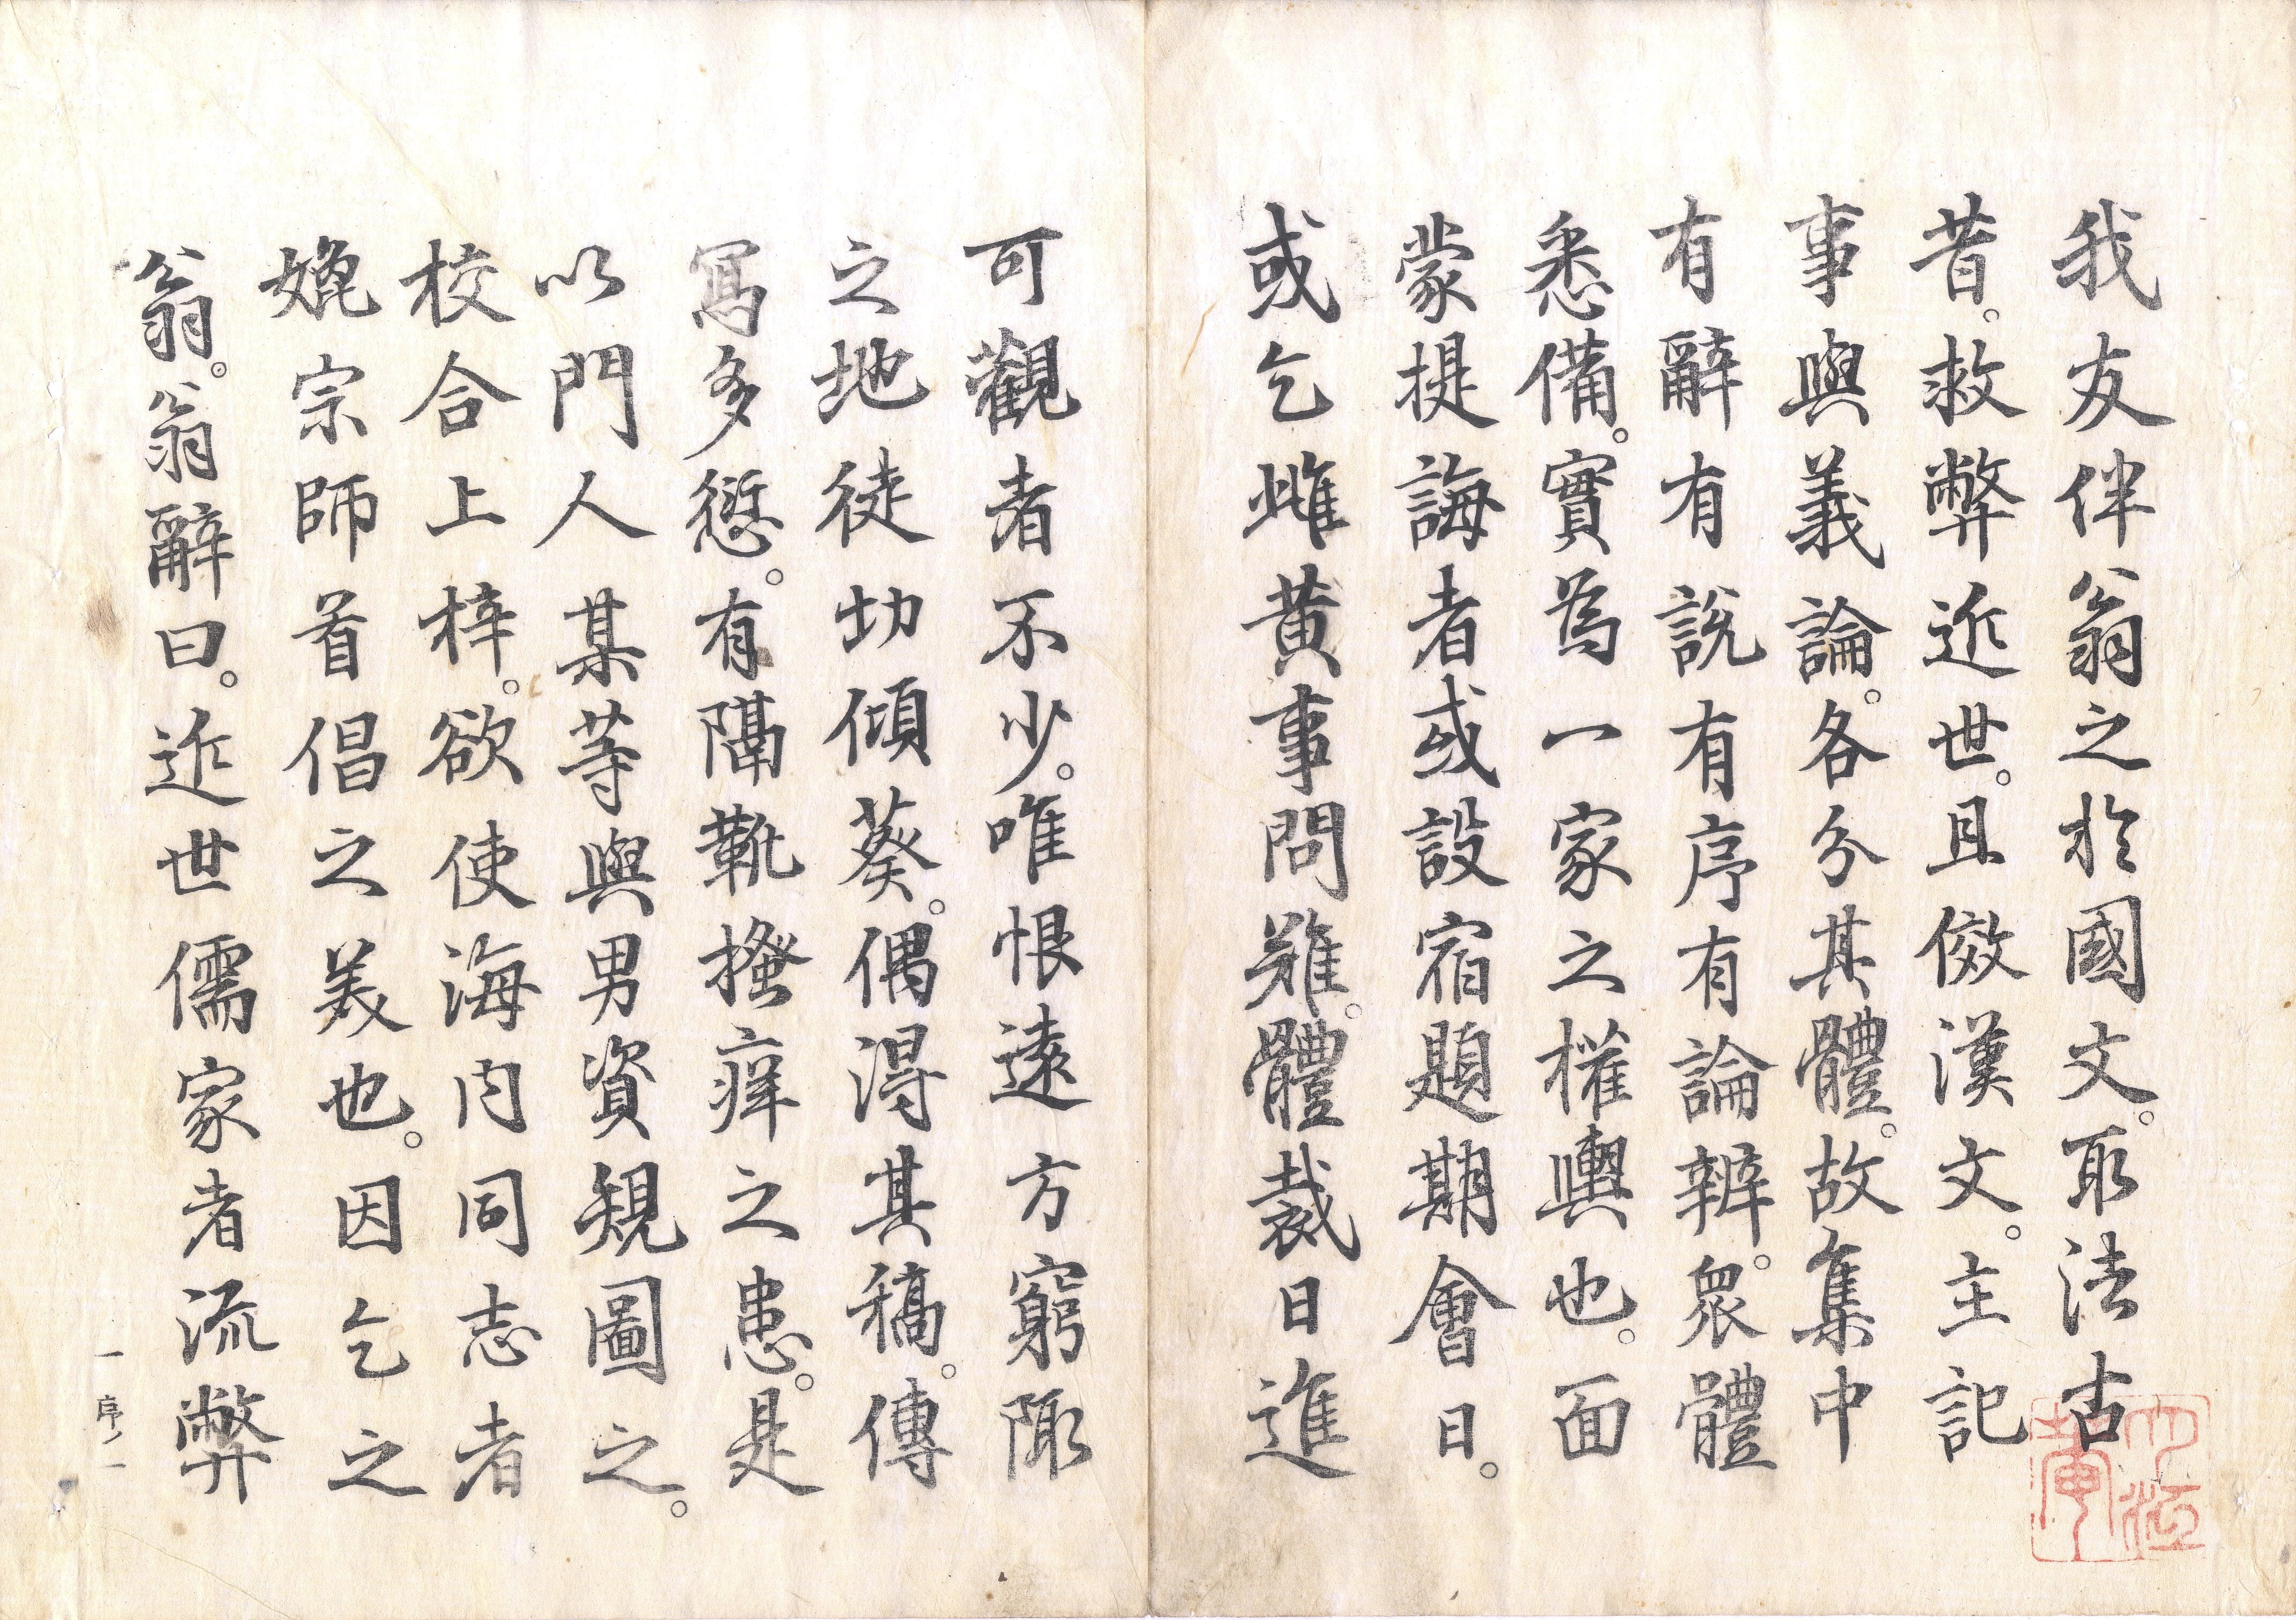 我友伴翁之於國文。取法古
昔。救弊近世。且傚漢文。主記
事與義論。各分其體。故集中
有辭有説有序有論辨。衆體
悉備。實為一家之權輿也。面
蒙提誨者或設宿題期會日。
或乞雌黄事問難。體裁日進
可觀者不少。唯恨遠方窮陬
之地徒切傾葵。偶得其稿。傳
寫多愆。有隔靴搔痒之患。是
以門人某等與男資規圖之。
校合上梓。欲使海内同志者
娩宗師首倡之美也。因乞之
翁。翁辭曰。近世儒家者流弊
一序ノ一